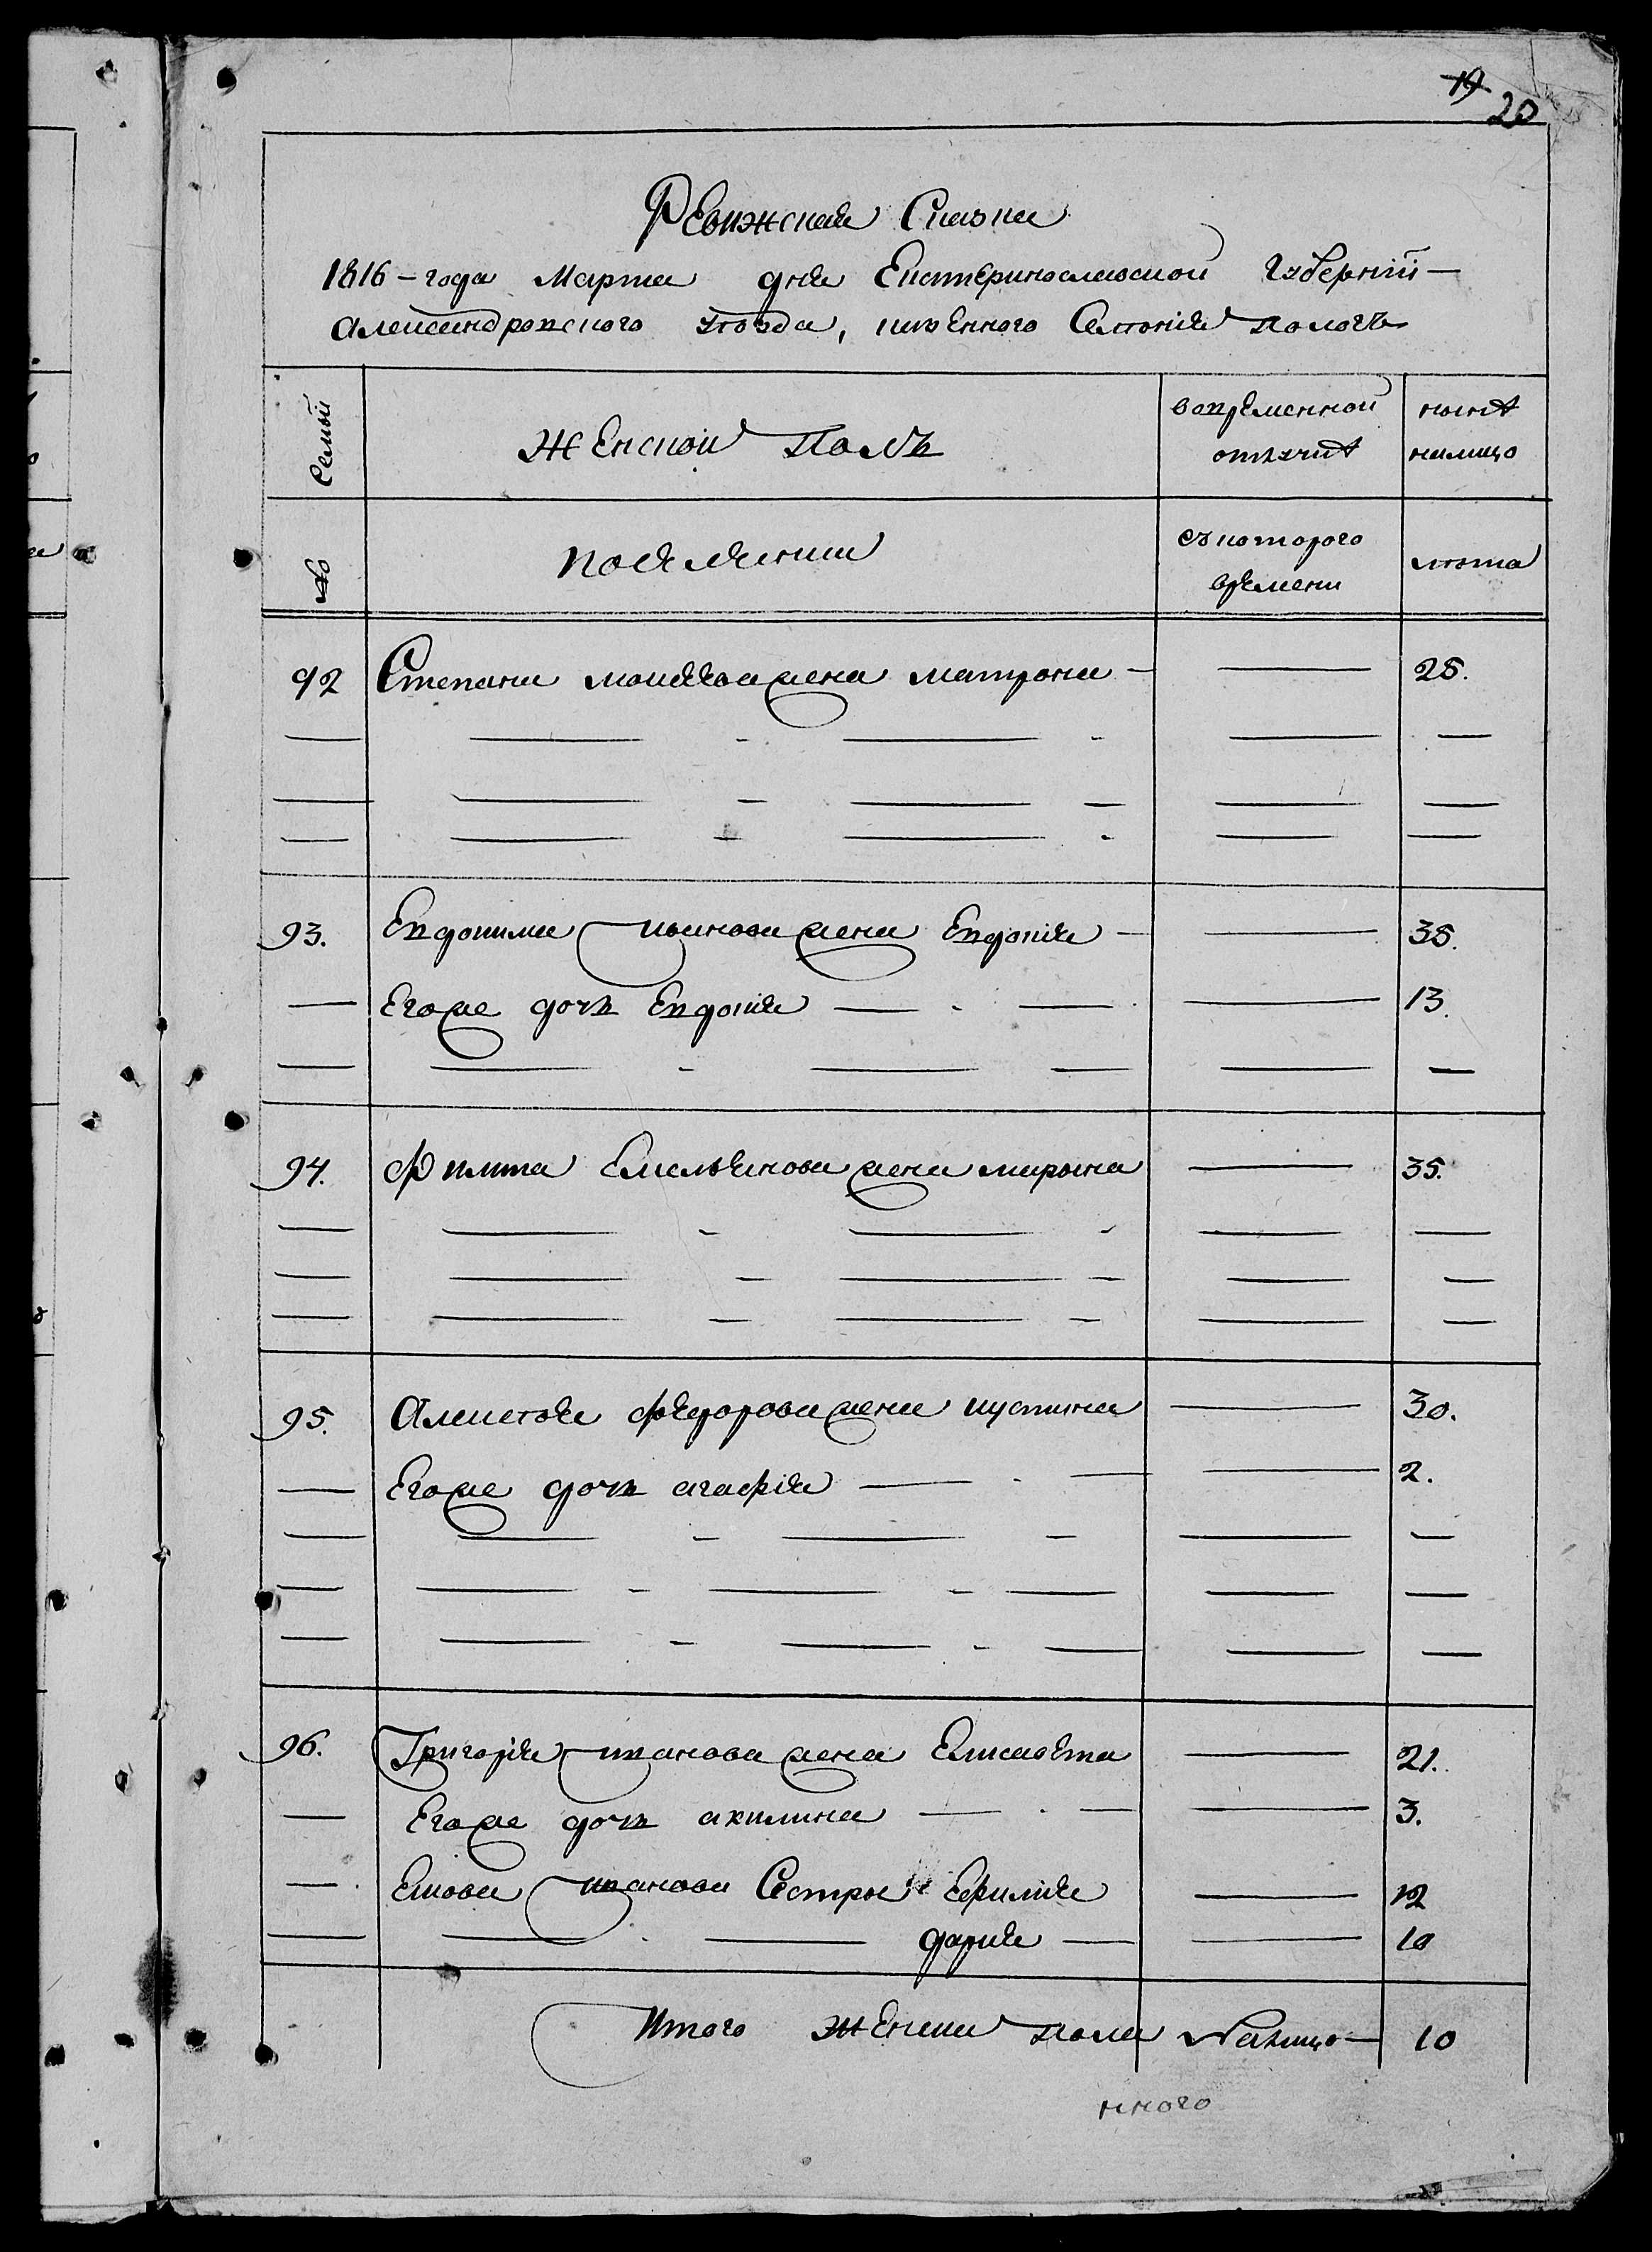 19
20
Ревижская Сказка
1816 – года Марта дня Екатеринославской Губерніи –
Александровского уѣзда, казенного Селенія пологъ
Семьи
женской полъ
вовременной отлучкѣ
нынѣ налицо
№
Поселянки
съ которого времени
лѣта
92 Степана моисѣева жена матрона – 25.
93. Евдокима иванова жена Евдокія – 35.
Егоже дочь Евдокія 13.
94. Филипа Емельянова жена марына 35.
95. Алексѣя федорова жена иустина 30.
Егоже дочь агафія 2.
96. Григорія иванова жена Елисавета 21.
Егоже дочь акилина 3.
Екова иванова Сестры Ефимія 12
дарія 10
Итого женска пола налицо – 10
много